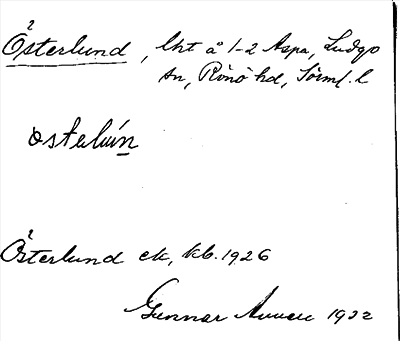 Österlund, lht å 1-2 Aspa, Ludgo
sn, Rönö hd, Sörml. l
østeluń̲
Österlund ek, kb. 1926
Gunnar 1932